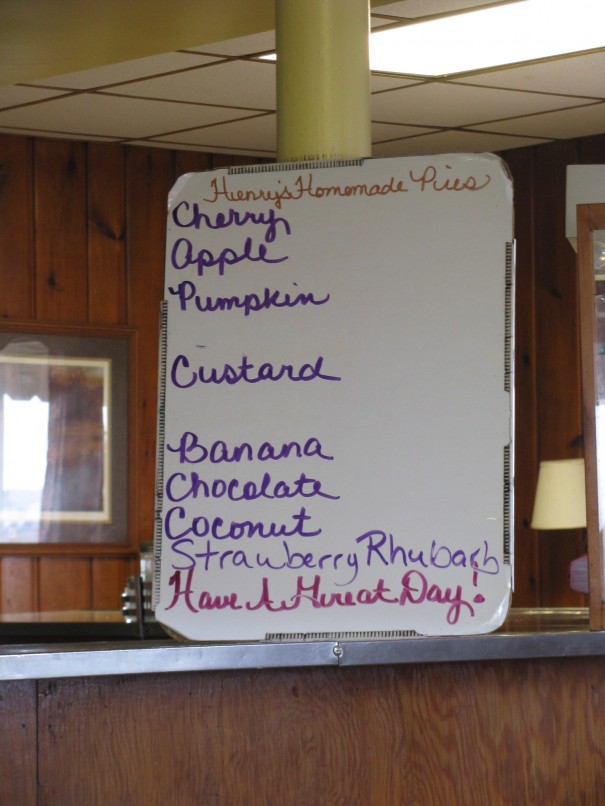 Henry's Homemade Pies
Cherry
Apple
Pumpkin
Custard
Banana
Chocolate
Coconut
Strawberry Rhubarb
Have A Great Day!